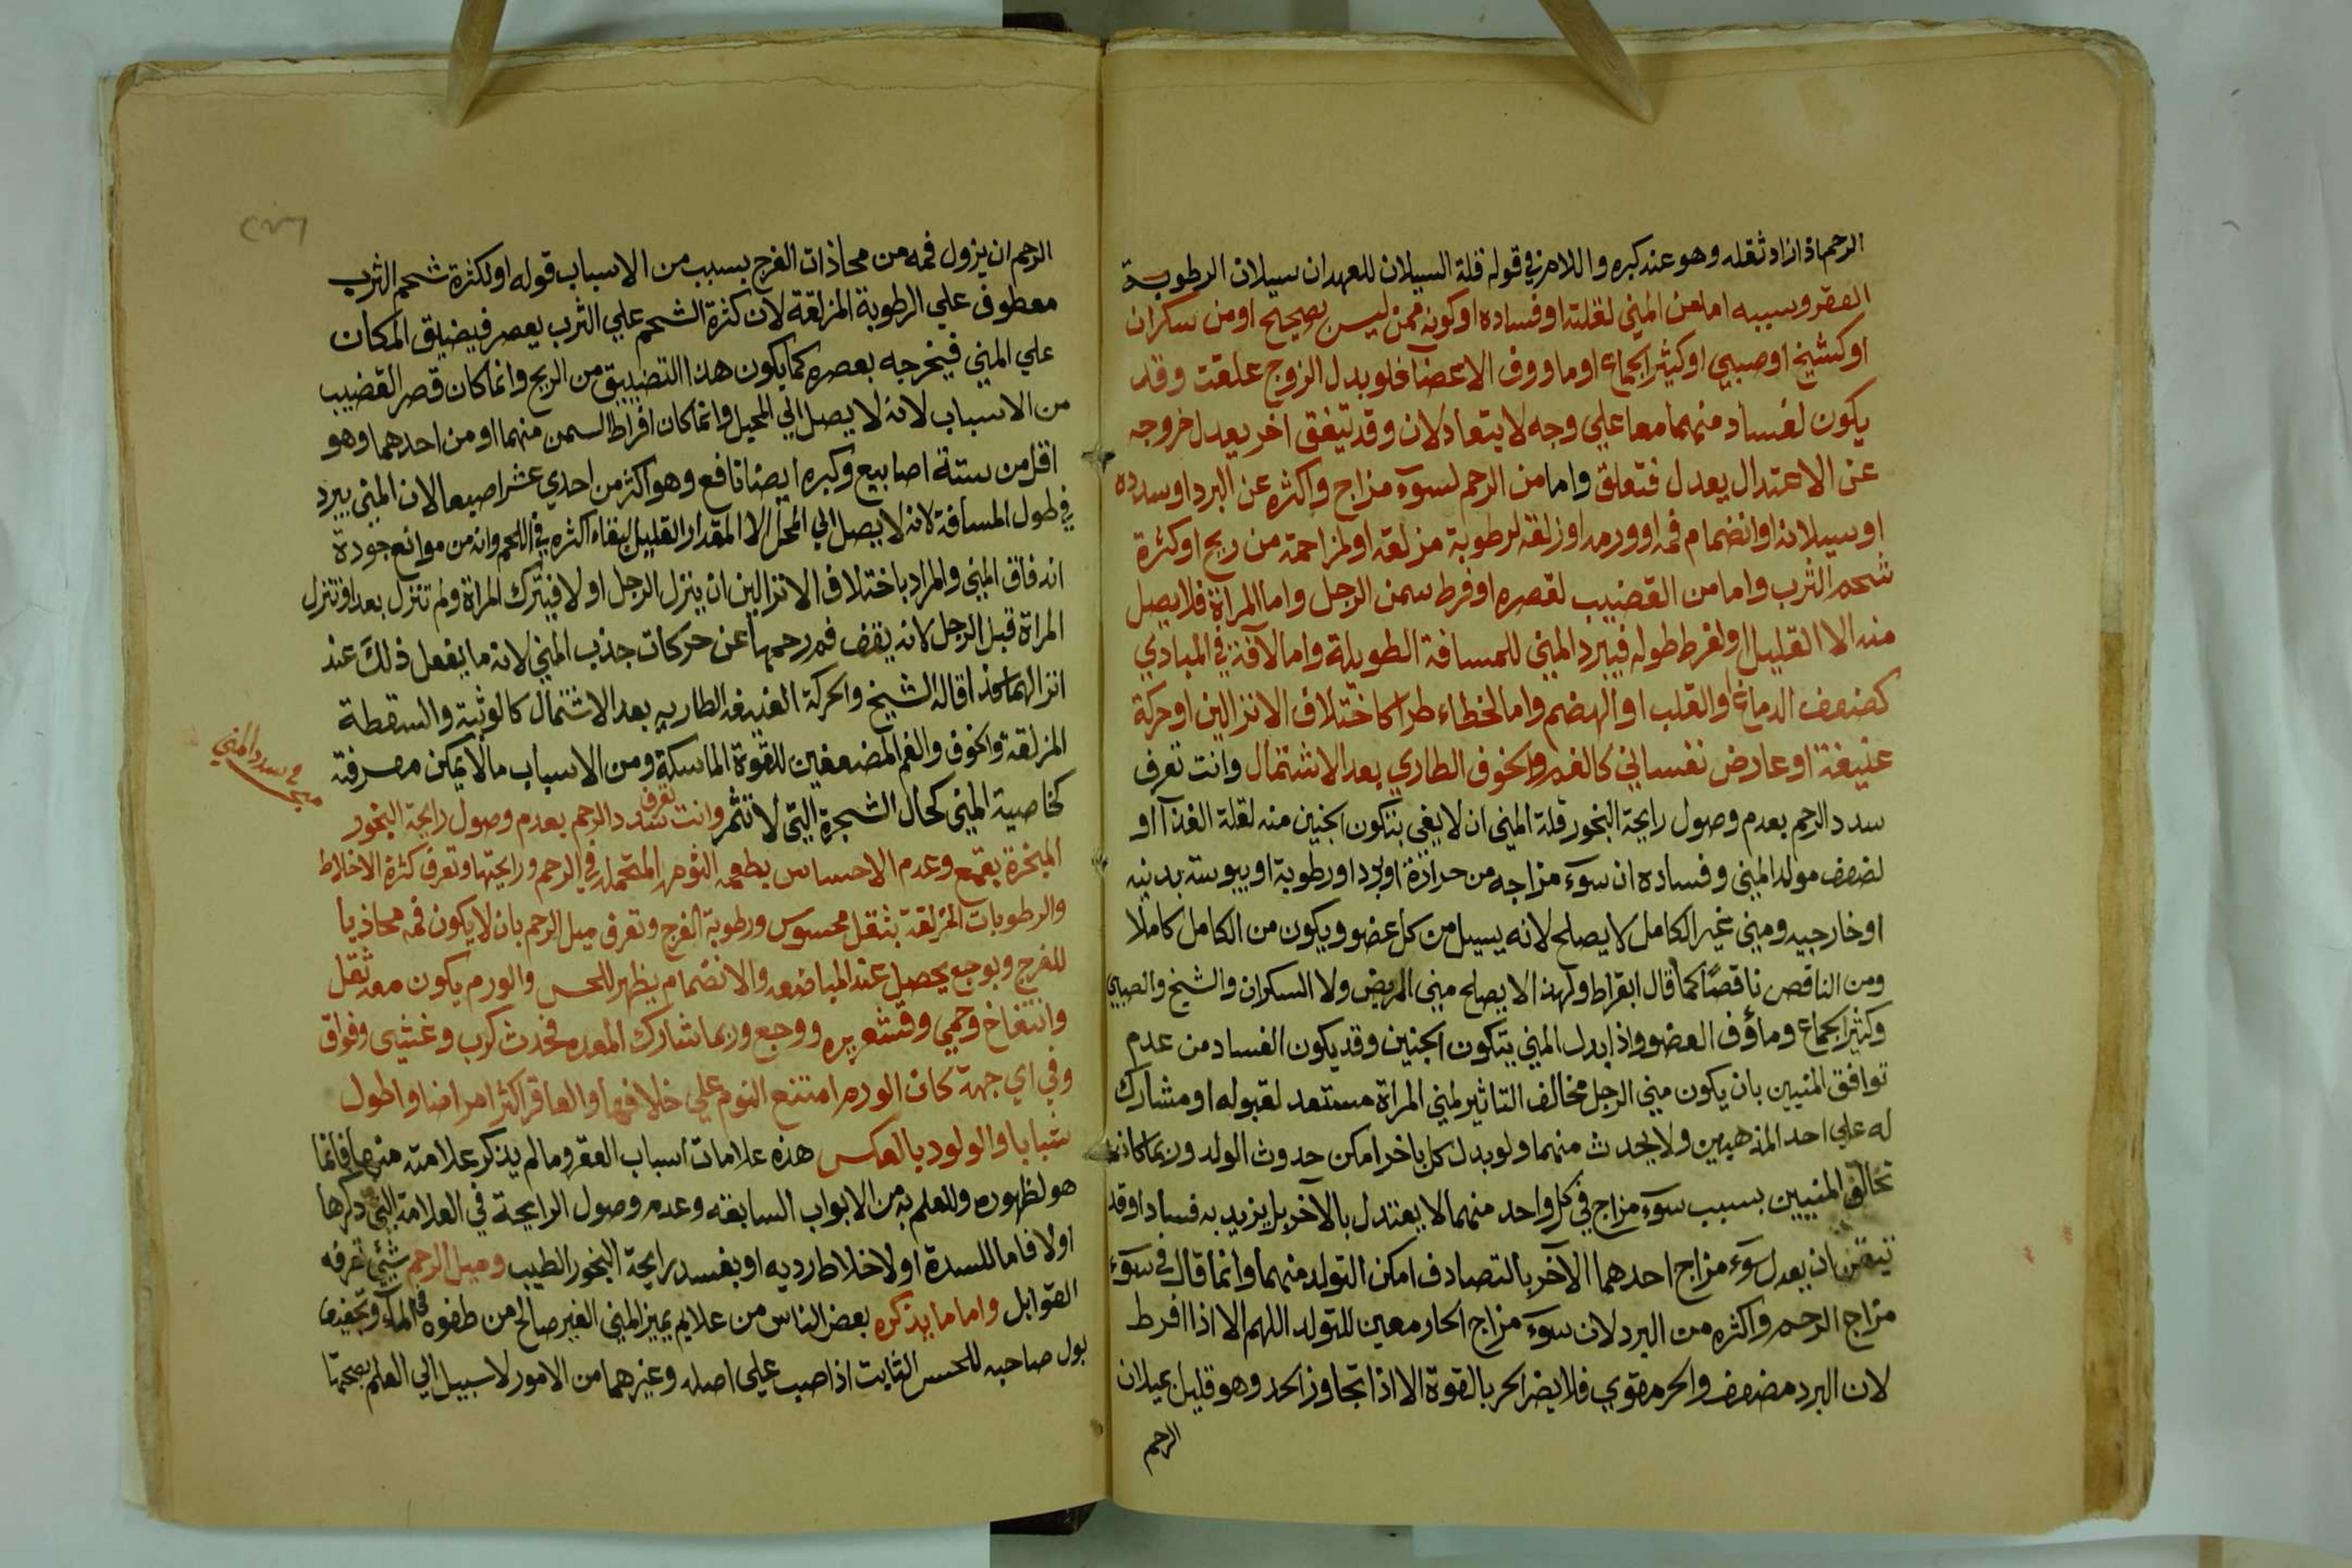 الرحم اذا زاد ثقله وهو عند كبره واللامز في قوله قلة السيلان للعهد ان سيلان الرطوبة
العقر وسببه اما من المني لقلته او فساده او كونه ممن ليس بصحيح او من سكران
او كشيخ او صبي او كثير الجماع او ماووف الاعضا فلو بدل الزوج علقت وقد
يكون لفساد منهما معا علي وجه لا يتعادلان وقد تيفق اخر يعدل خروجه
عن الاعتدال يعدل فتعلق واما من الرحم لسوء مزاج واكثره عن البرد او سدده
او سيلانه او انضمام فمه او ورمه او زلقه لرطوبة مزلقة او لمزاحمة من ريح او كثرة
شحم الثرب واما من القضيب لقصره او فرط سمن الرجل واما المراة فلا يصل
منه الا القليل او لفرط طوله فيبرد المني للمسافة الطويلة واما لآفة في المبادي
كضعف الدماغ او القلب او الهضم واما لخطاء طرا كاختلاف الانزالين او حركة
عنيفة او عارض نفساني كالغم والخوف الطاري بعد الاشتمال وانت تعرف
سدد الرحم بعدم وصول رايحة البخور قلة المني ان لا يفي بتكون الجنين منه لقلة الغذآ او
لضعف مولد المني وفساده ان سوء مزاجه من حرارة او برد او رطوبة او يبوسة بدنيه
او خارجيه ومني غير الكامل لا يصلح لانه يسيل من كل عضو ويكون من الكامل كاملا
ومن الناقص ناقصًا كما قال ابقراط ولهذا لا يصلح مني المريض ولا السكران والشيخ والصبي
وكثير الجماع ومأوف العضو واذا بدل المني يتكون الجنين وقد يكون الفساد من عدم
توافق المنيين بان يكون مني الرجل مخالف التاثير لمني المراة مستعد لقبوله او مشارك
له علي احد المذهبين ولا يحدث منهما ولو بدل كل باخر امكن حدوث الولد وربما كانت
تخالف المنيين بسبب سوء مزاج في كل واحد منهما لا يعتدل بالآخر بل يزيد به فسادا وقد
ان يعدل سوء مزاج احدهما الآخر بالتصادف امكن التولد منهما وانما قال في سوء
مزاج الرحم واكثره من البرد لان سوء مزاج الحار معين للتولد اللهم الا اذا افرط
لان البرد مضعف والحر مقوي فلا يضر الحر بالقوة الا اذا تجاوز الحد وهو قليل بميلان
الرحم
الرحم ان يزول فمه من محاذات الفرج بسبب من الاسباب قوله او لكثرة شحم الثرب
معطوف علي الرطوبة المزلقة لان كثرة الشحم علي الثرب يعصر فيضيق المكان
علي المني فيخرجه بعصره كما يكون هذا التضييق من الريح وانما كان قصر القضيب
من الاسباب لانه لا يصل الي المحبل وانما كان افراط السمن منهما او من احدهما وهو
اقل من ستة اصابيع وكبره ايضا نافع وهو اكثر من احدي عشر اصبعا لان المني يبرد
في طول المسافة لانه لا يصل الي المحل الا المقدار القليل لبقاء اكثره في اللحم وانه من موانع جودة
اندفاق المني والمراد باختلاف الانزالين ان ينزل الرجل اولا فيترك المراة ولم تنزل بعد او تنزل
المراة قبل الرجل لانه يقف فم رحمها عن حركات جذب المني لانه ما يفعل ذلك عند
انزالهما هكذا قاله الشيخ والحركة العنيفه الطاريه بعد الاشتمال كالوثبة والسقطة
المزلقة والخوف والغم المضعفين للقوة الماسكة ومن الاسباب ما لا يمكن معرفته
كخاصية المني كحال الشجرة التي لا تثمر وانت تعرف سدد الرحم بعدم وصول رايحة البخور
في سدد المني
المبخرة بقمع وعدم الاحساس بطعم الثوم المتحمله في الرحم ورايحتها وتعرف كثرة الاخلاط
والرطوبات المزلقة بثقل محسوس ورطوبة الفرج وتعرف ميل الرحم بان لا يكون فمه محاذيا
للفرج وبوجع يحصل عند المباضعه والانضمام يظهر للحس والورم يكون معه ثقل
وانتفاخ وحمي وقشعريره ووجع وربما شارك المعده فحدث كرب وغثيي وفواق
وفي اي جهة كان الورم امتنع النوم علي خلافها والعاقر اكثر امراضا واطول
شبابا والولود بالعكس هذه علامات اسباب العقر وما لم يذكر علامته منها فانما
هو لظهوره وللعلم به من الابواب السابقه وعدم وصول الرايحة في العلامة التي ذكرها
اولا فاما للسدة او لاخلاط رديه او بفسد رايحة البخور الطيب وميل الرحم شيئ تعرفه
القوابل واما ما يذكره بعض الناس من علايم يميز المني الغير صالح من طفوه في المآء وتجفيف
بول صاحبه للحس الثابت اذا صب علي اصله وغيرهما من الامور لا سبيل الي العلم بصحتها